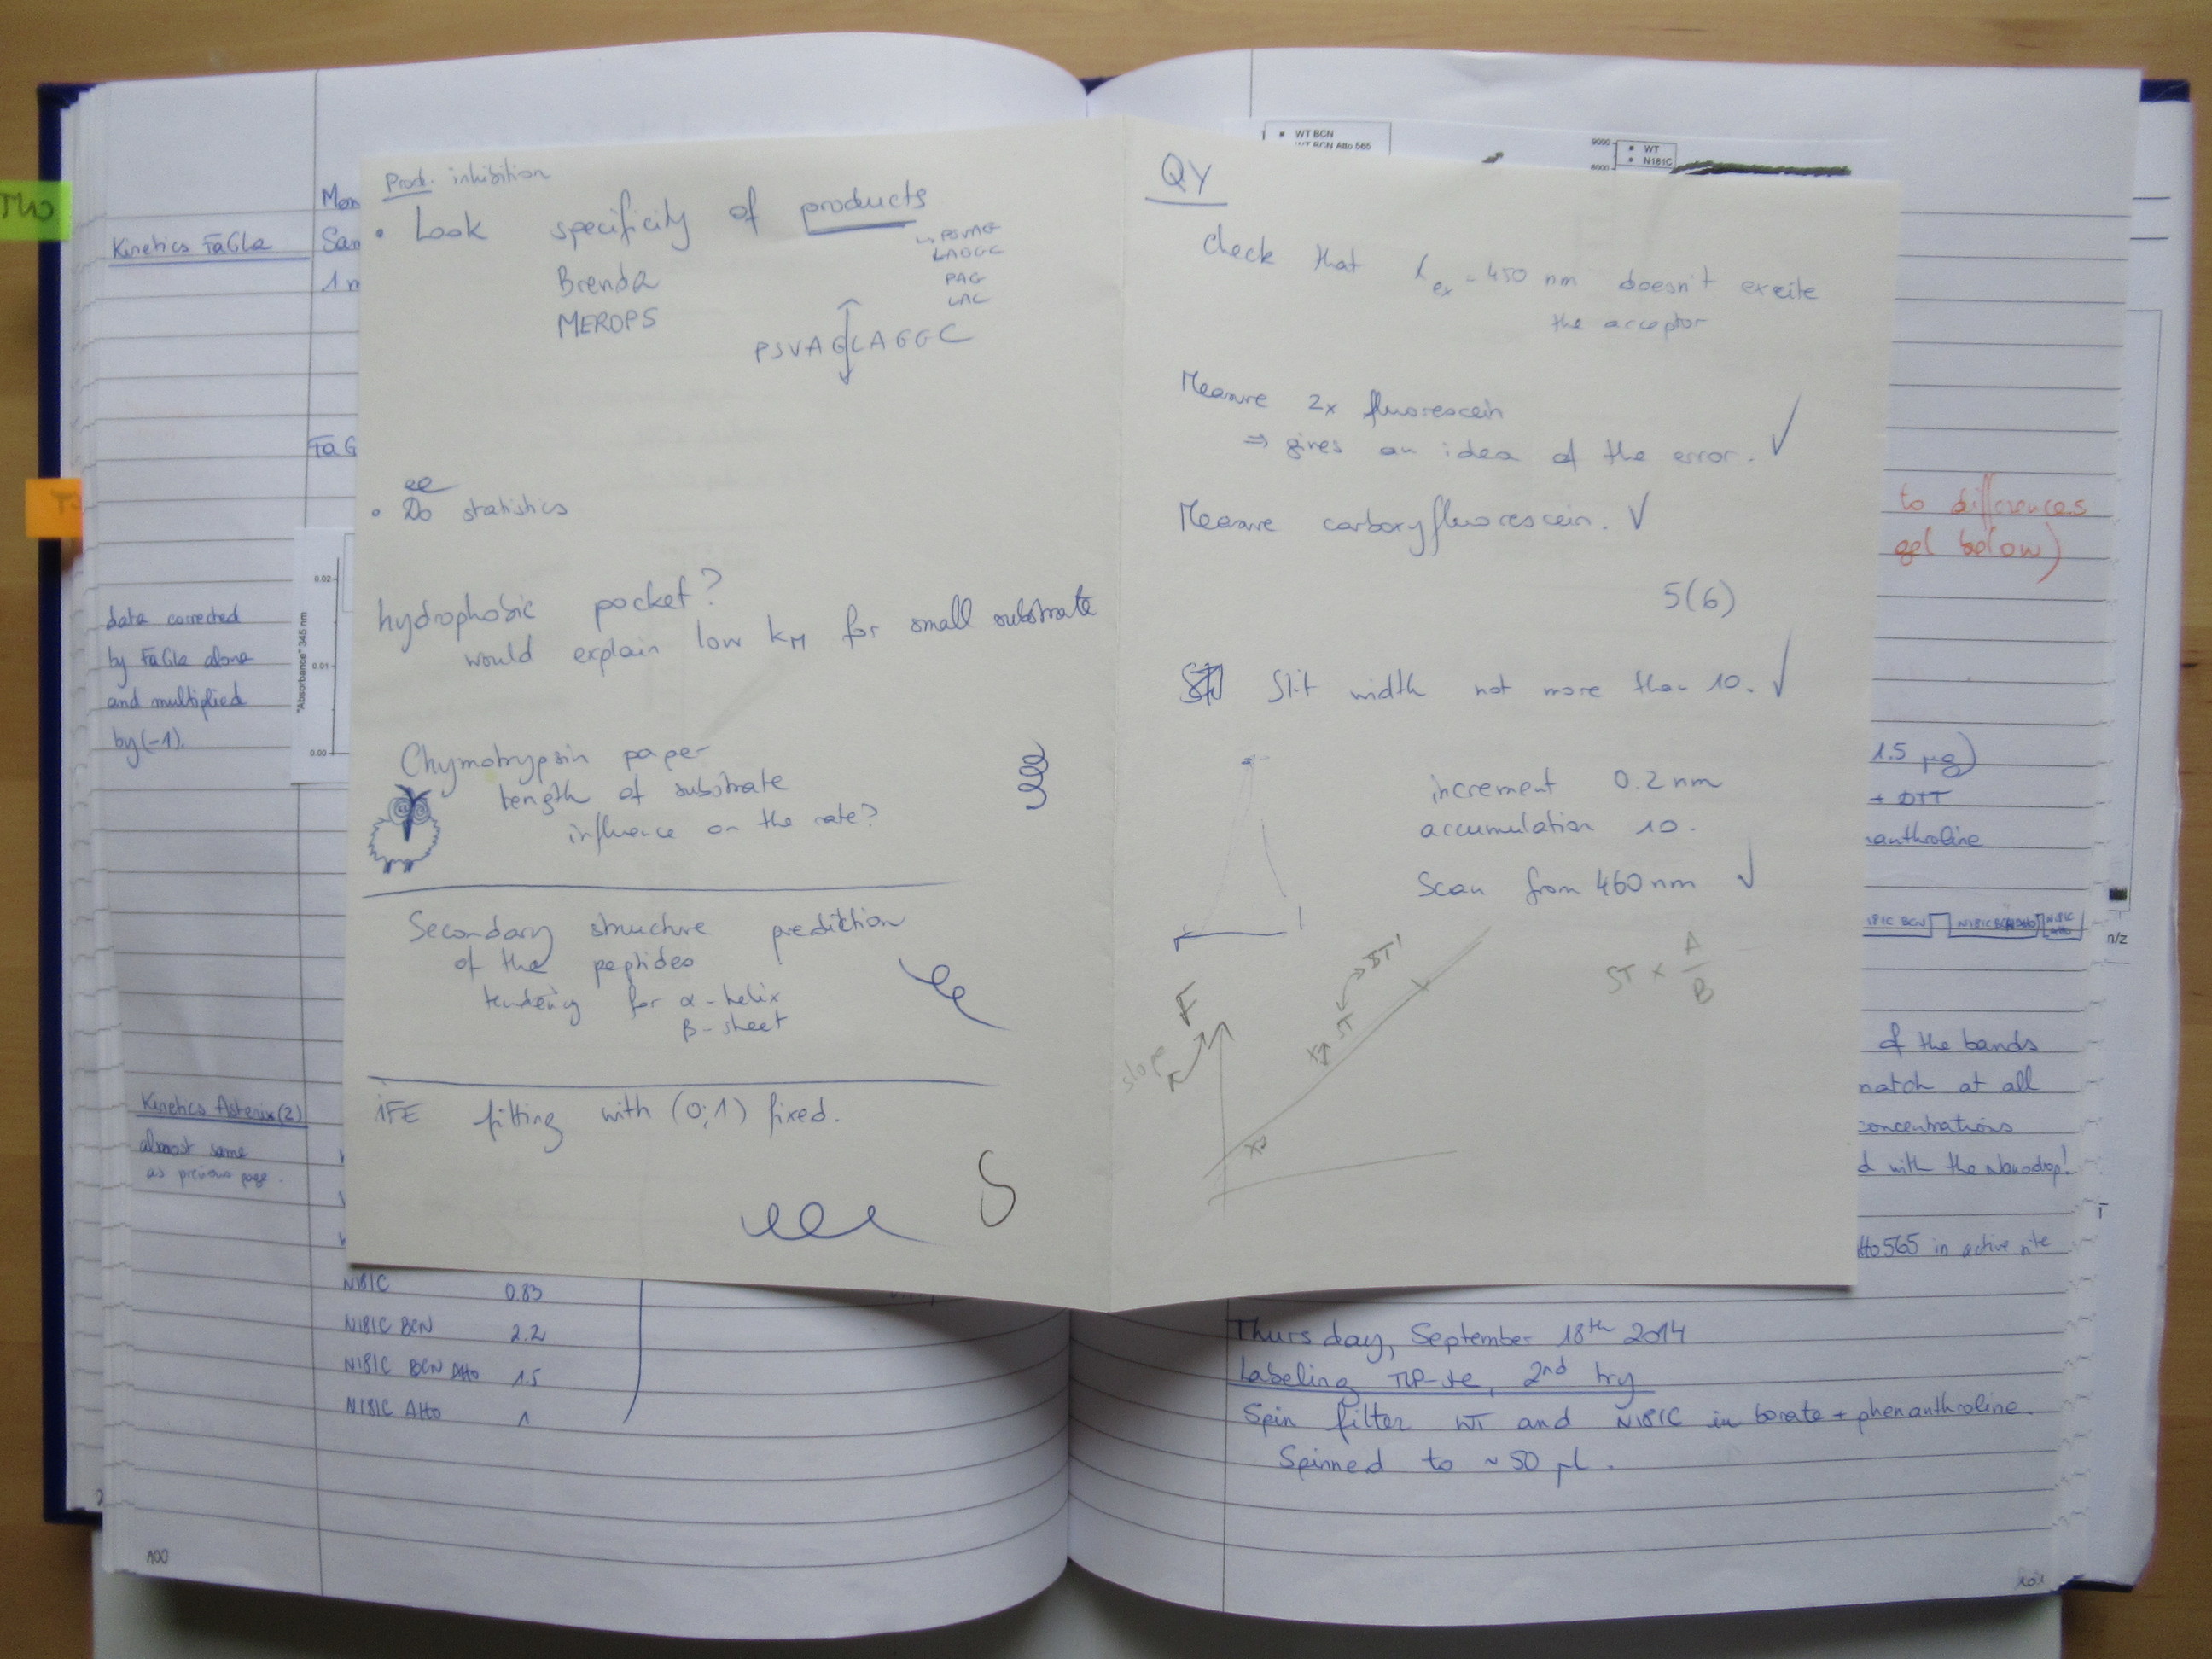 Prod. inhibition
• Look specificity of products
PSVAG
LAGGC
PAG
LAC
Brenda
MEROPS
PSVAGLAGGC
• Do statistics
hydrophobic pocket?
would explain low kM for small substrate
Chymotrypsin paper
length of substrate
influence on the rate?
Secondary structure prediction
of the peptides
tendency for α-helix
β-sheet
iFE fitting with (0;1) fixed.
S
QY
Check that λex = 450 nm doesn't excite
the acceptor
Measure 2x fluorescein
⇒ gives an idea of the error. ✓
Measure carboxyfluorescein. ✓
5(6)
Slit width not more than 10. ✓
increment 0.2 nm
accumulation 10.
Scan from 460 nm ✓
ST × A/B
F
slope
ST
ST'
Kinetics FaGLa
Mon
San
1 m
FaG
data corrected
by FaGLa alone
and multiplied
by (-1).
"Absorbance" 345 nm
0.02
0.01
0.00
Kinetics Asterix (2)
almost same
as previous page.
N181C 0.83
N181C BCN 2.2
N181C BCN Atto 1.5
N181C Atto 1
100
WT BCN
WT BCN Atto 565
9000
8000
WT
N181C
to differences
gel below)
1.5 µg)
+ DTT
nanthroline
181C BCN
N181C BCN Atto
N181C Atto
n/z
of the bands
match at all
concentrations
d with the Nanodrop!
Atto565 in active site
Thursday, September 18th 2014
Labeling TLP-ste, 2nd try
Spin filter WT and N181C in borate + phenanthroline.
Spinned to ~ 50 µl.
101